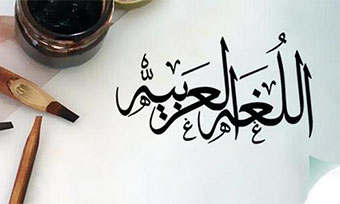 اللُغَه العربيه